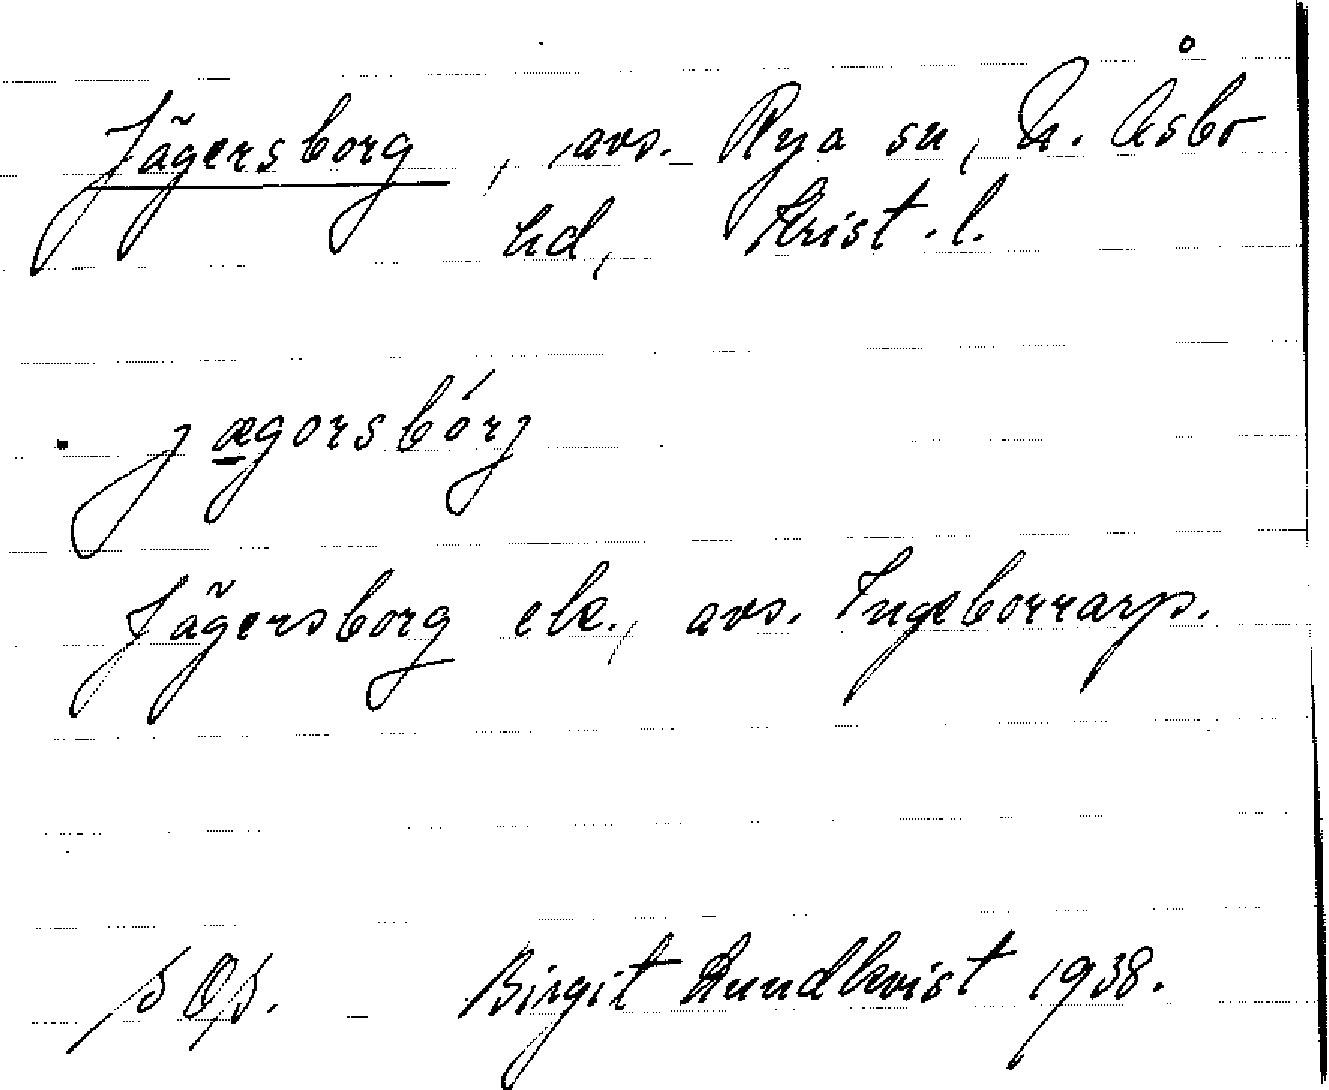 Jägersborg, avs. Rya sn, N. Åsbo
hd, Krist. l.
jægorsbórj
Jägersborg ek., avs. Ingeborrarp.
Birgit Lundkvist 1938.